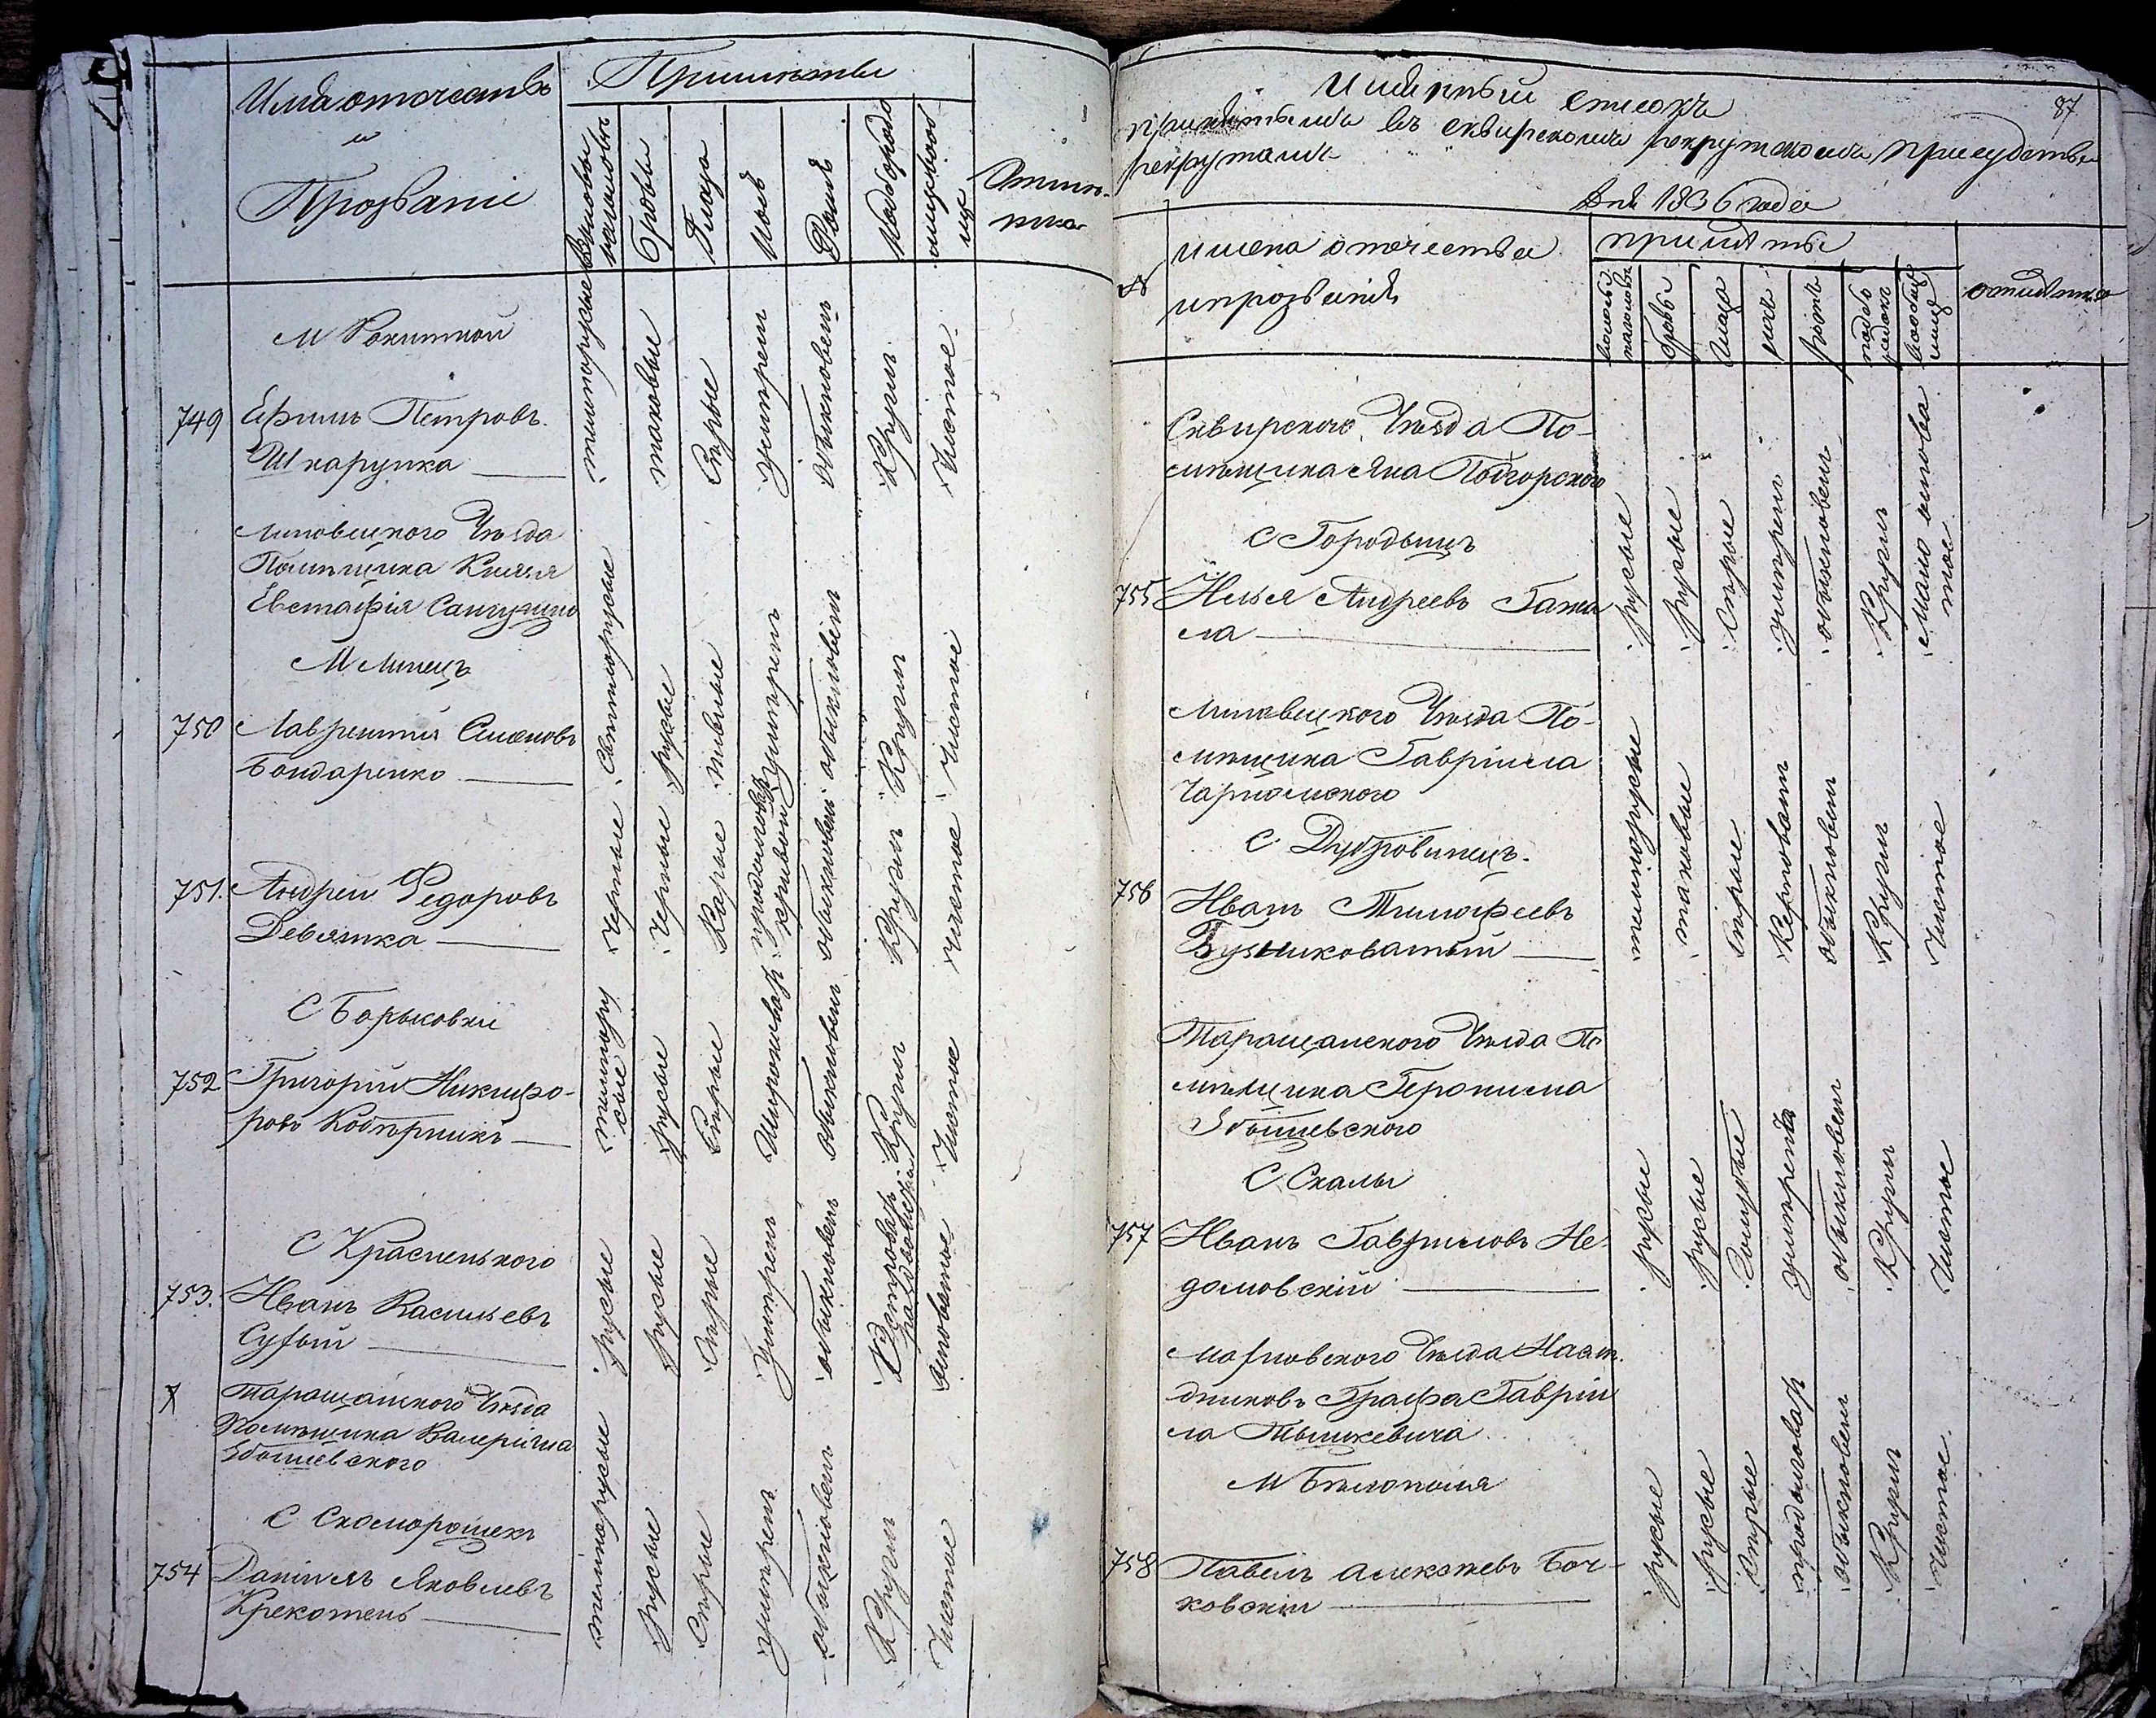 Имя отчество
и
Прозваніе
Приметы
Волосы
на голове
Брови
Глаза
Носъ
Ротъ
Подбородо
лице
Отмет-
ка
М Рокитной
749 Ефимъ Петровъ
Шкарупка
темнорусые
таковые
Серые
умерен
обыкновенъ
Кругл
Чистое
Липовецкого Уезда
Помещика Князя
Евстафія Сангушко
М Липецъ
750 Лаврентій Семеновъ
Бондаренко
Светлорусые
русые
умерен
обыкновен
Кругл
Чистое
751. Андрей Федоровъ
Девятка
Черные
Черные
Карые
продолговат
кривой
обыкновен
Кругл
Чистое
С Борыковки
752 Григорій Никифо-
ровъ
темнору
сые
русые
Серые
Широковат
обыкновен
Кругл
Чистое
С Красненького
753. Иванъ Васильевъ
Сухый
русые
русые
Серые
Умерен
обыкновен
Островат
раздвоен
Таращанского Уезда
Помещика Валеріяна
Збошевского
С Скоморошекъ
754 Даніилъ Яковлевъ
Крекотень
темнорусые
русые
Серые
умерен
обыкновен
Кругл
Чистое
87
Имянный списокъ
принятымъ въ Сквирскомъ рекрутскомъ присудствіи
рекрутамъ
Дня 1836 года
№
имена отчества
и прозванія
приметы
волосы
на голове
брови
глаза
носъ
ротъ
подбо
родокъ
вообще
лице
отметка
Сквирского Уезда По-
мещика Яна Подгорского
С Городыщъ
755 Илья Андреевъ Гама
ла
русые
русые
Серые
умерен
обыкновен
Кругл
Мало
тое
Липовецкого Уезда По-
мещика Гавріила
Чарномского
С Дубровинецъ
756 Иванъ Тимофеевъ
Бузнковатый
темнорусые
таковые
Серые
Керповат
обыкновен
Кругл
Чистое
Таращанского Уезда По
мещика Іеронима
Збошевского
С Скалы
757 Иванъ Гавриловъ Не-
домовскій
русые
русые
Голубые
умерен
обыкновен
Кругл
Чистое
Махновского Уезда Насле
дниковъ Графа Гавріи
ла Тышкевича
М Белополя
758 Павелъ Алексеевъ Боч-
ковскій
русые
русые
Серые
продолговат
обыкновен
Кругл
Чистое